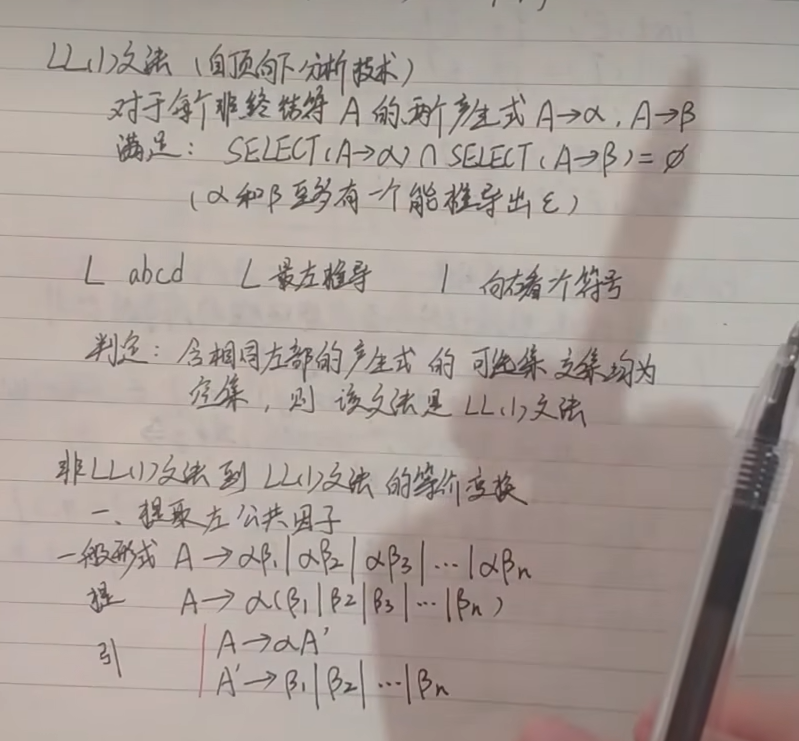 LL(1)文法（自顶向下分析技术）
对于每个非终结符 A 的两个产生式 A→α，A→β
满足： SELECT(A→α)∩SELECT(A→β)=∅
（α和β至多有一个能推导出ε）
L abcd L 最左推导 1 向右看个符号
判定：含相同左部的产生式的可选集交集均为
空集，则该文法是LL(1)文法
非LL(1)文法到LL(1)文法的等价变换
一、提取左公共因子
一般形式 A→αβ₁|αβ₂|αβ₃|…|αβn
提 A→α(β₁|β₂|β₃|…|βn)
引 A→αA'
A'→β₁|β₂|…|βn